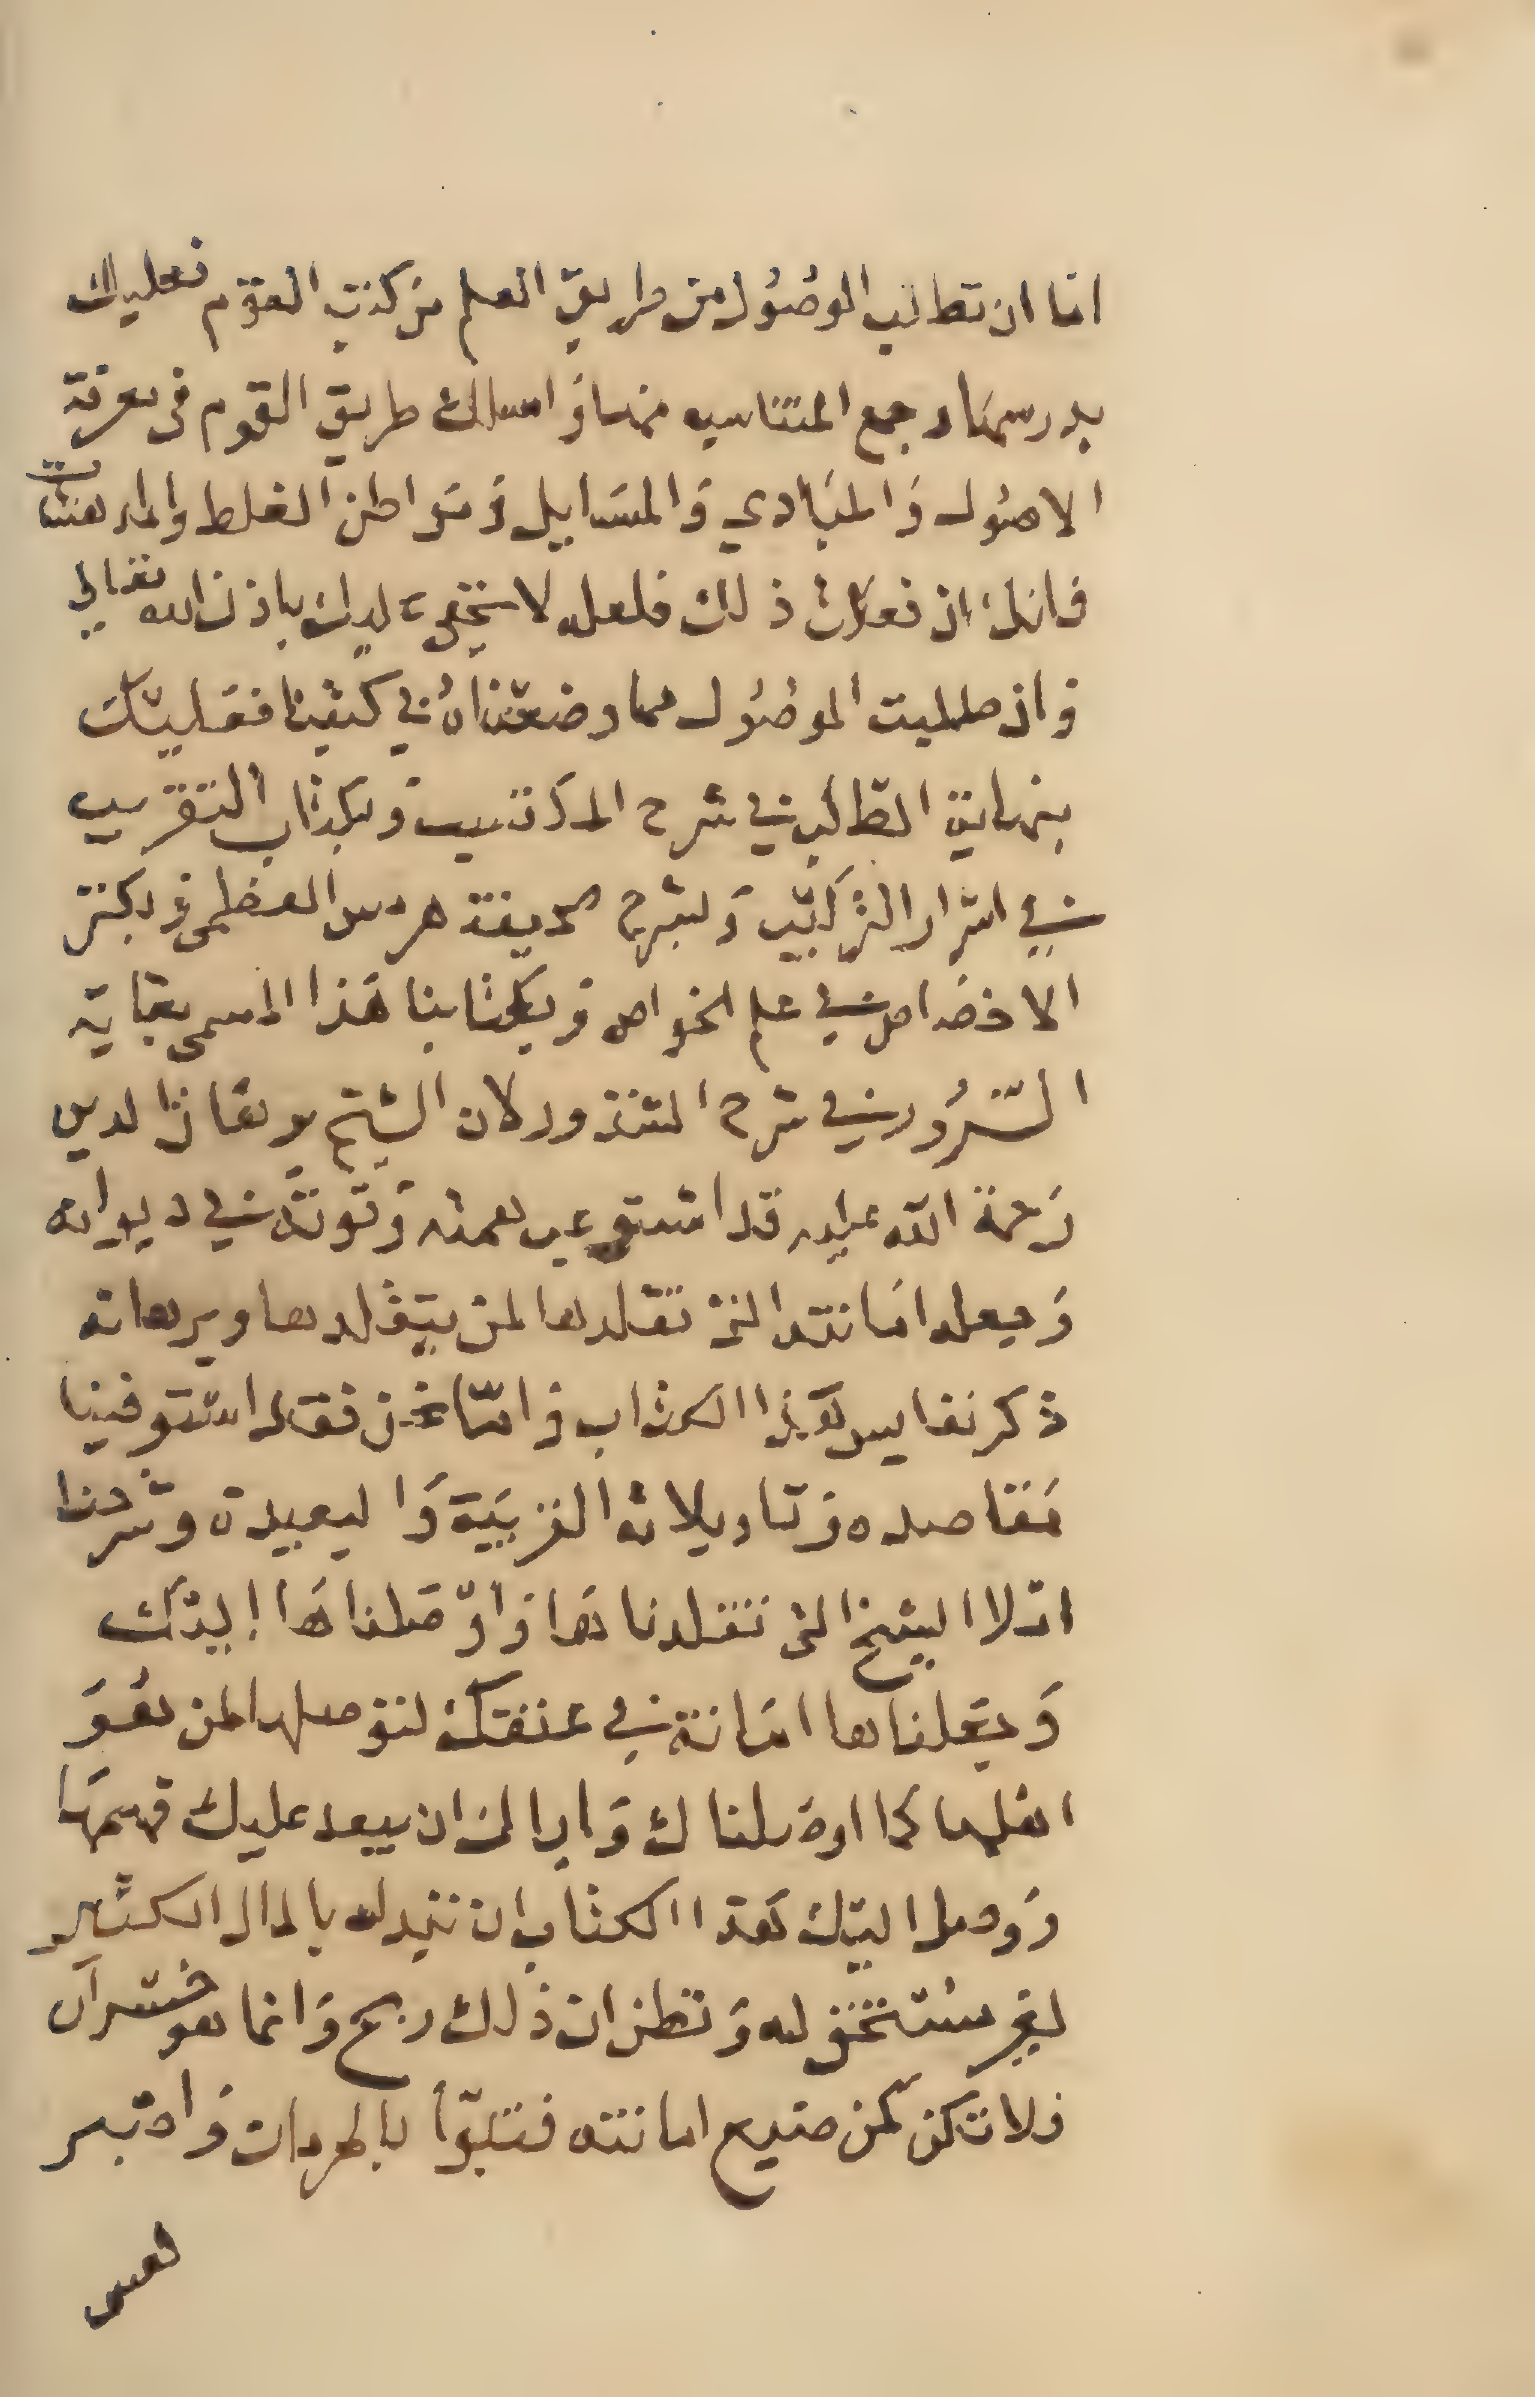 اما ان تطالب الوصول من طريق العلم من كتب القوم فعليك
بدرسها وجمع المتناسبه منها واسلك طريق القوم في معرفة
الاصول والمبادي والمسايل ومواطن الغلط والمدهشات
فانك ان فعلت ذلك فلعله لا يخفي عليك باذن الله تعالي
وان طلبت الوصول مما وضعناه في كتبنا فعليك
بنهاية الطالب في شرح المكتسب وبكتاب التقريب
في اسرار التركيب وبشرح صحيفة هرمس العظمي وبكنز
الاختصاص في علم الخواص وبكتابنا هذا المسمي بغاية
السرور في شرح الشذور لان الشيخ برهان الدين
رحمة الله عليه قد استوعب علمه وقوته في ديوانه
وجعله امانته التي تقلدها لمن يتقلدها وبرهانه
ذكر نفايس هذا الكتاب واما نحن فقد استوفينا
مقاصده وتاويلاته القريبة والبعيدة وشرحنا
امانة الشيخ التي تقلدناها واوصلناها اليك
وجعلناها امانة في عنقك لتوصلها لمن هو
اهلها كما اوصلناك واياك ان يبعد عليك فهمها
ووصل اليك هذا الكتاب ان تبدله بالمال الكثير
لغير مستحق له وتظن ان ذلك ربح وانما هو خسران
فلا تكن كمن ضيع امانته فتبوأ بالحرمان واصبر